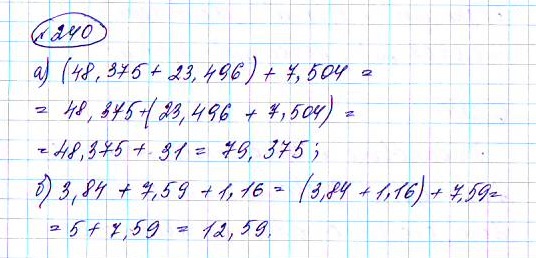 №240
а) (48,375 + 23,496) + 7,504 =
= 48,375+(23,496 + 7,504) =
= 48,375 + 31 = 79,375;
б) 3,84 + 7,59 + 1,16 = (3,84 + 1,16) + 7,59=
= 5 + 7,59 = 12,59.